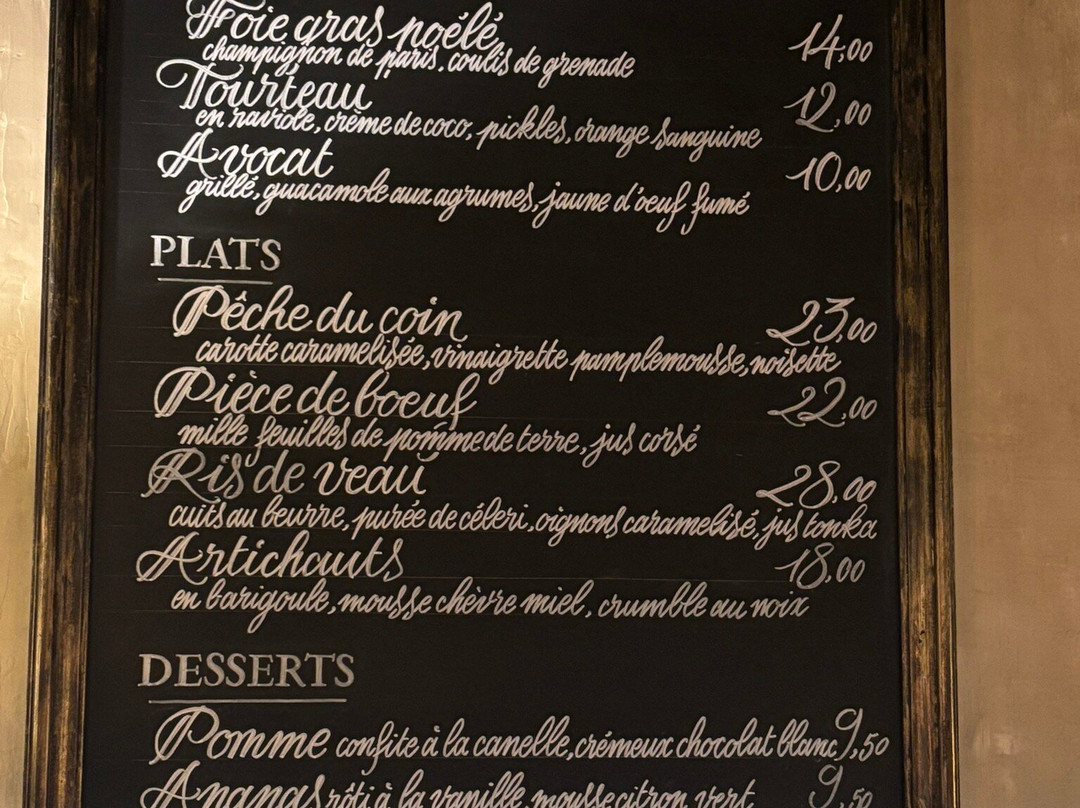 Foie gras poélé 14,00
champignon de paris, coulis de grenade
Tourteau 12,00
en raviole, crème de coco, pickles, orange sanguine
Avocat 10,00
grillé, guacamole aux agrumes, jaune d'oeuf fumé
PLATS
Pêche du coin 23,00
carotte caramelisée, vinaigrette pamplemousse, noisette
Pièce de boeuf 22,00
mille feuilles de pomme de terre, jus corsé
Ris de veau 28,00
cuits au beurre, purée de céleri, oignons caramelisé, jus tonka
Artichauts 18,00
en barigoule, mousse chèvre miel, crumble au noix
DESSERTS
Pomme confite à la canelle, crémeux chocolat blanc 9,50
Ananas rôti à la vanille, mousse citron vert 9,50